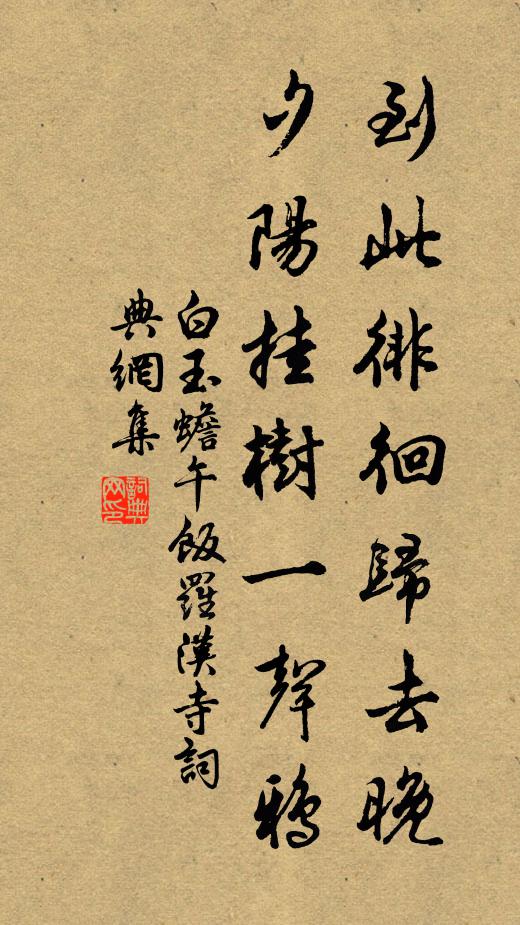 到此徘徊歸去晚
夕陽挂樹一聲鴉
白玉蟾午飯羅漢寺詞
典網集
詞典網印